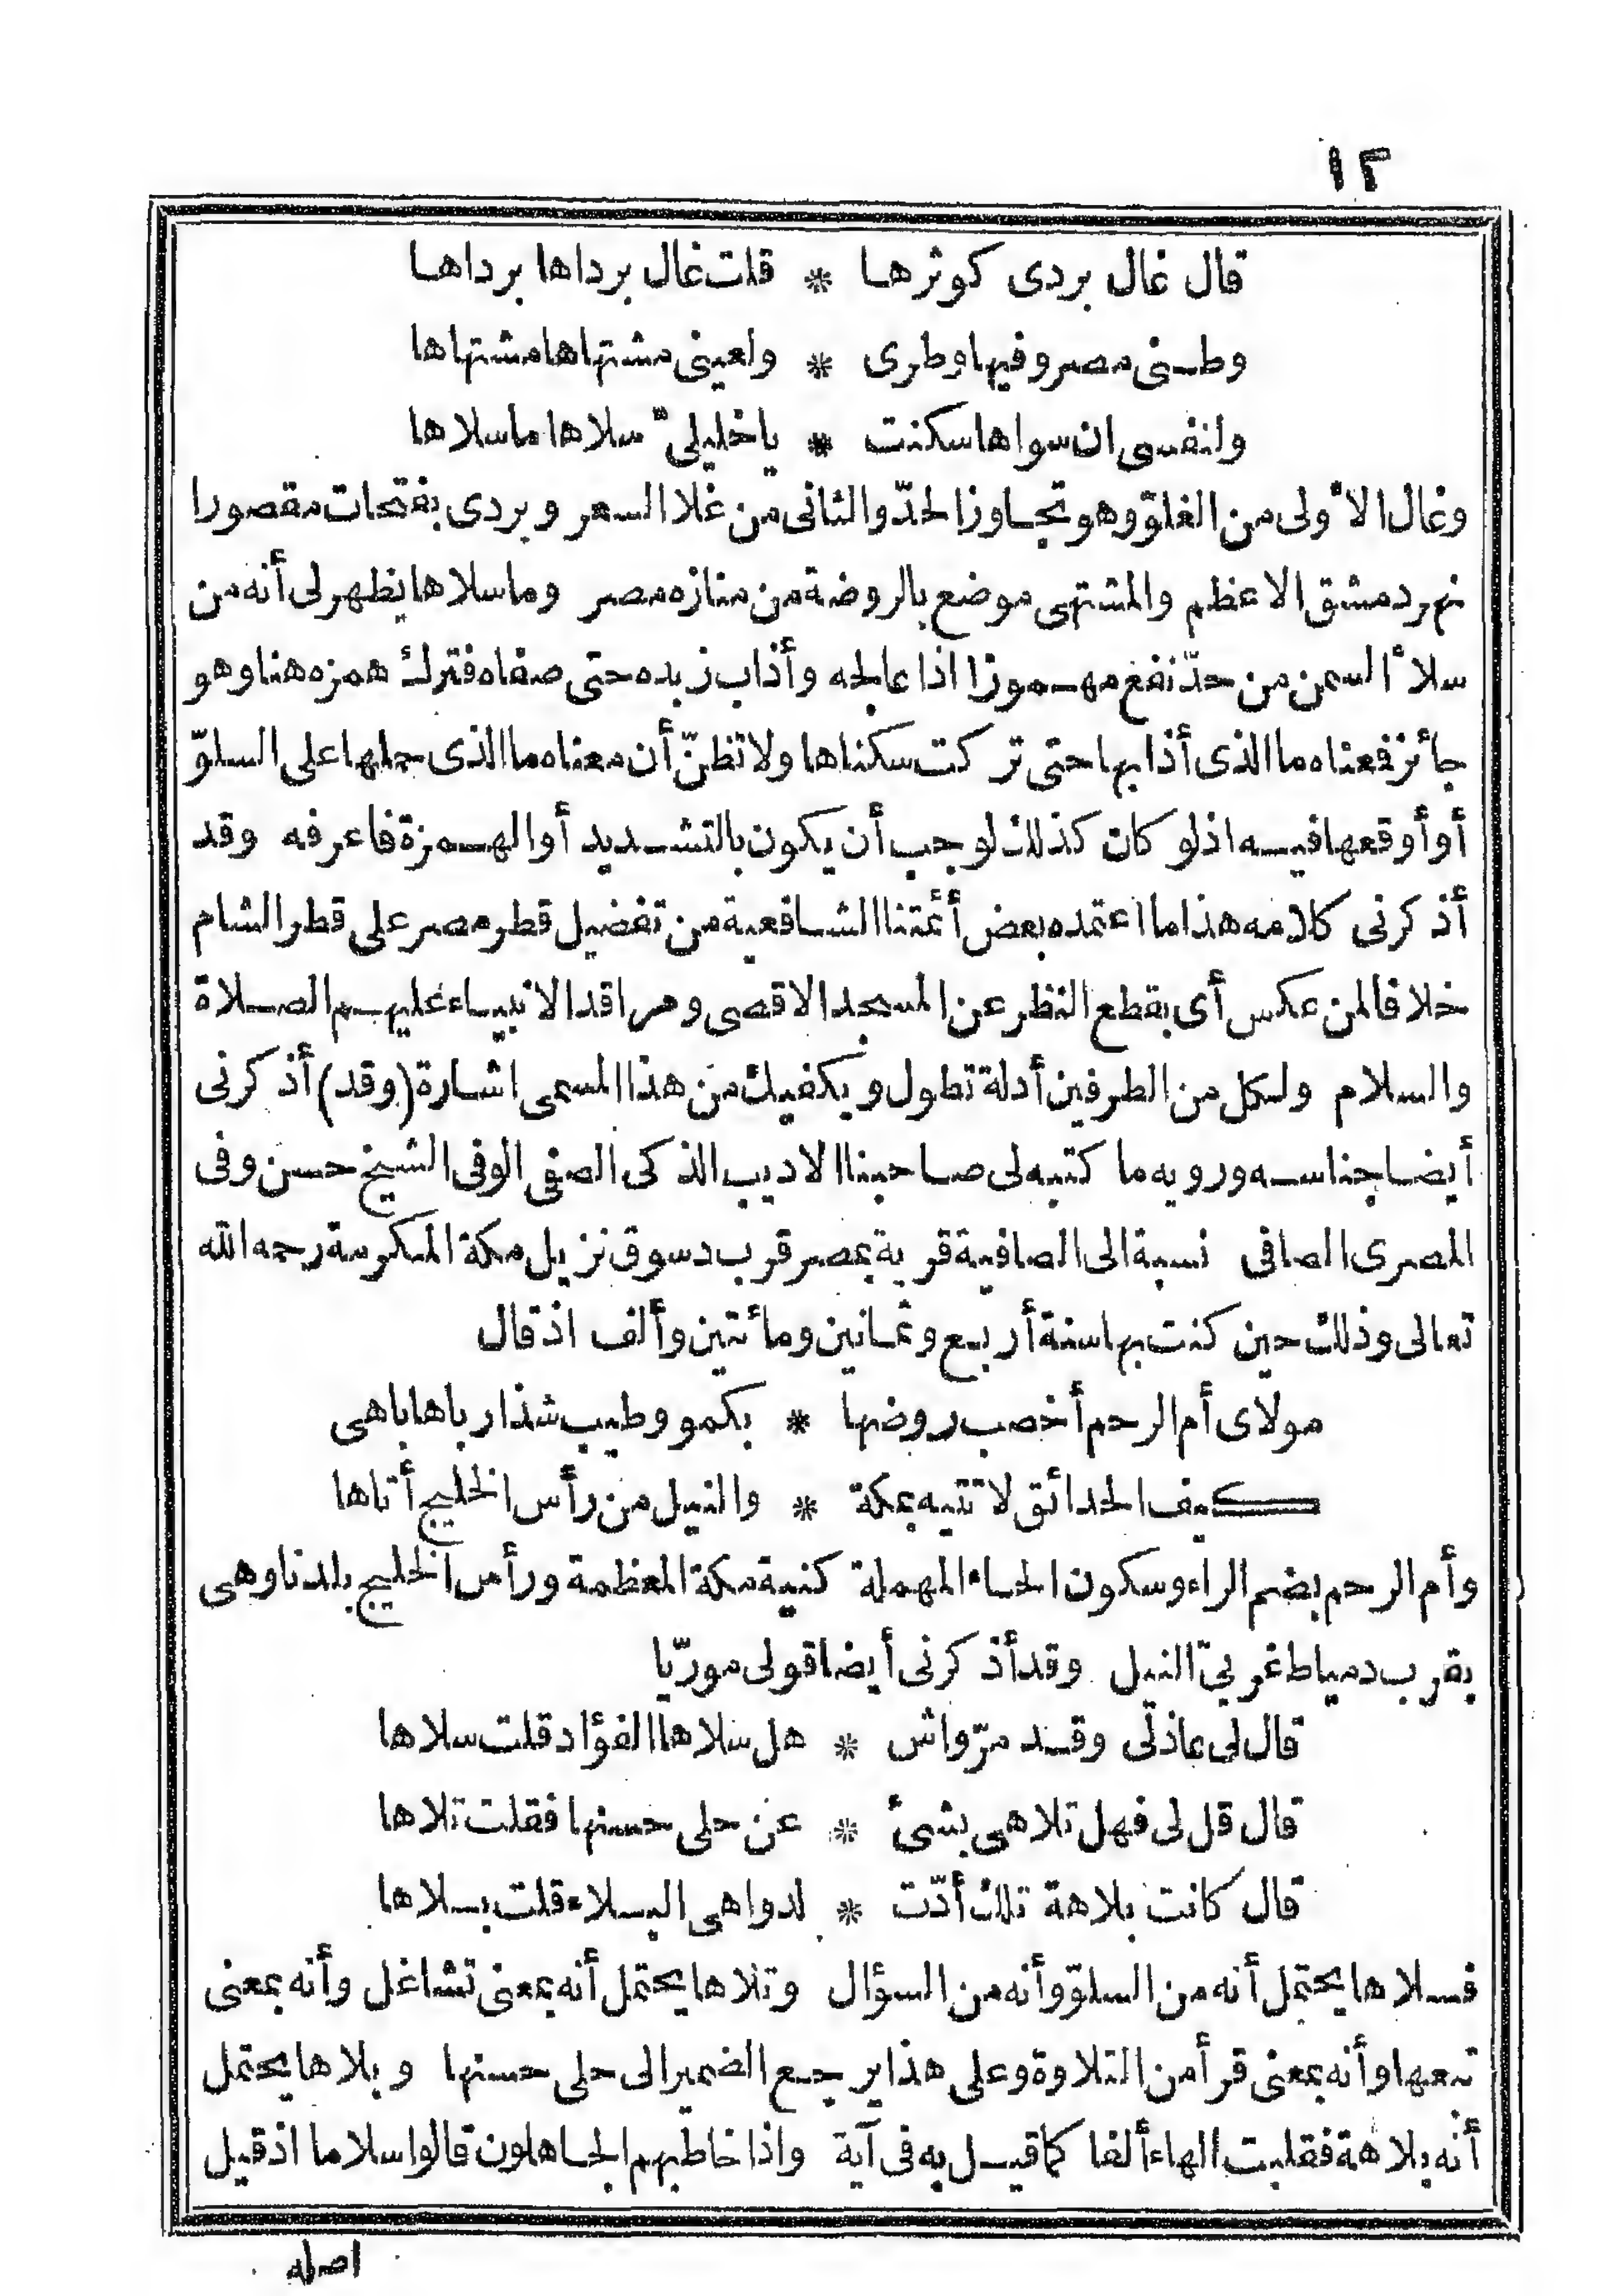 ١٢
قال غال بردى كوثرها * قلت غال برداها برداها
وطنى مصر وفيها وطرى * ولعينى مشتهاها مشتهاها
ولنفسى ان سواها سكنت * ياخليلىّ سلاها ماسلاها
وغال الأولى من الغلوّ وهو تجاوز الحدّ والثانى من غلا السعر وبردى بفتحات مقصورا
نهر دمشق الاعظم والمشتهى موضع بالروضة من منازه مصر وماسلاها يظهر لى أنه من
سلأ السمن من حدّ نفع مهموزا اذا عالجه وأذاب زبده حتى صفاه فترك همزه هنا وهو
جائز فمعناه ما الذى أذابها حتى تركت سكناها ولا تظنّ أن معناه ما الذى حملها على السلوّ
أو أوقعها فيه اذ لو كان كذلك لوجب أن يكون بالتشديد أو الهمزة فاعرفه وقد
أذكرنى كلامه هذا ما اعتمده بعض أئمتنا الشافعية من تفضيل قطر مصر على قطر الشام
خلافا لمن عكس أى بقطع النظر عن المسجد الاقصى ومراقد الانبياء عليهم الصلاة
والسلام ولكل من الطرفين أدلة تطول ويكفيك من هذا المسمى اشارة (وقد) أذكرنى
أيضا جناسه ورويه ما كتبه لى صاحبنا الاديب الذكى الصفى الوفى الشيخ حسن وفى
المصرى الصافى نسبة الى الصافية قرية بمصر قرب دسوق نزيل مكة المكرمة رحمه الله
تعالى وذلك حين كنت بها سنة أربع وثمانين ومائتين وألف اذ قال
مولاى أم الرحم أخصب روضها * بكمو وطيب شذا رباها باهى
كيف الحدائق لا تتيه بمكة * والنيل من رأس الخليج أتاها
وأم الرحم بضم الراء وسكون الحاء المهملة كنية مكة المعظمة ورأس الخليج بلدنا وهى
بقرب دمياط غربىّ النيل وقد أذكرنى أيضا قولى مورّيا
قال لى عاذلى وقد مرّ واش * هل سلاها الفؤاد قلت سلاها
قال قل لى فهل تلاهى بشئ * عن حلى حسنها فقلت تلاها
قال كانت بلاهة تلك أدّت * لدواهى البلاء قلت بلاها
فسلاها يحتمل أنه من السلوّ وأنه من السؤال وتلاها يحتمل أنه بمعنى تشاغل وأنه بمعنى
تبعها وأنه بمعنى قرأ من التلاوة وعلى هذا يرجع الضمير الى حلى حسنها وبلاها يحتمل
أنه بلاهة فقلبت الهاء ألفا كما قيل به فى آية واذا خاطبهم الجاهلون قالوا سلاما اذ قيل
اصله